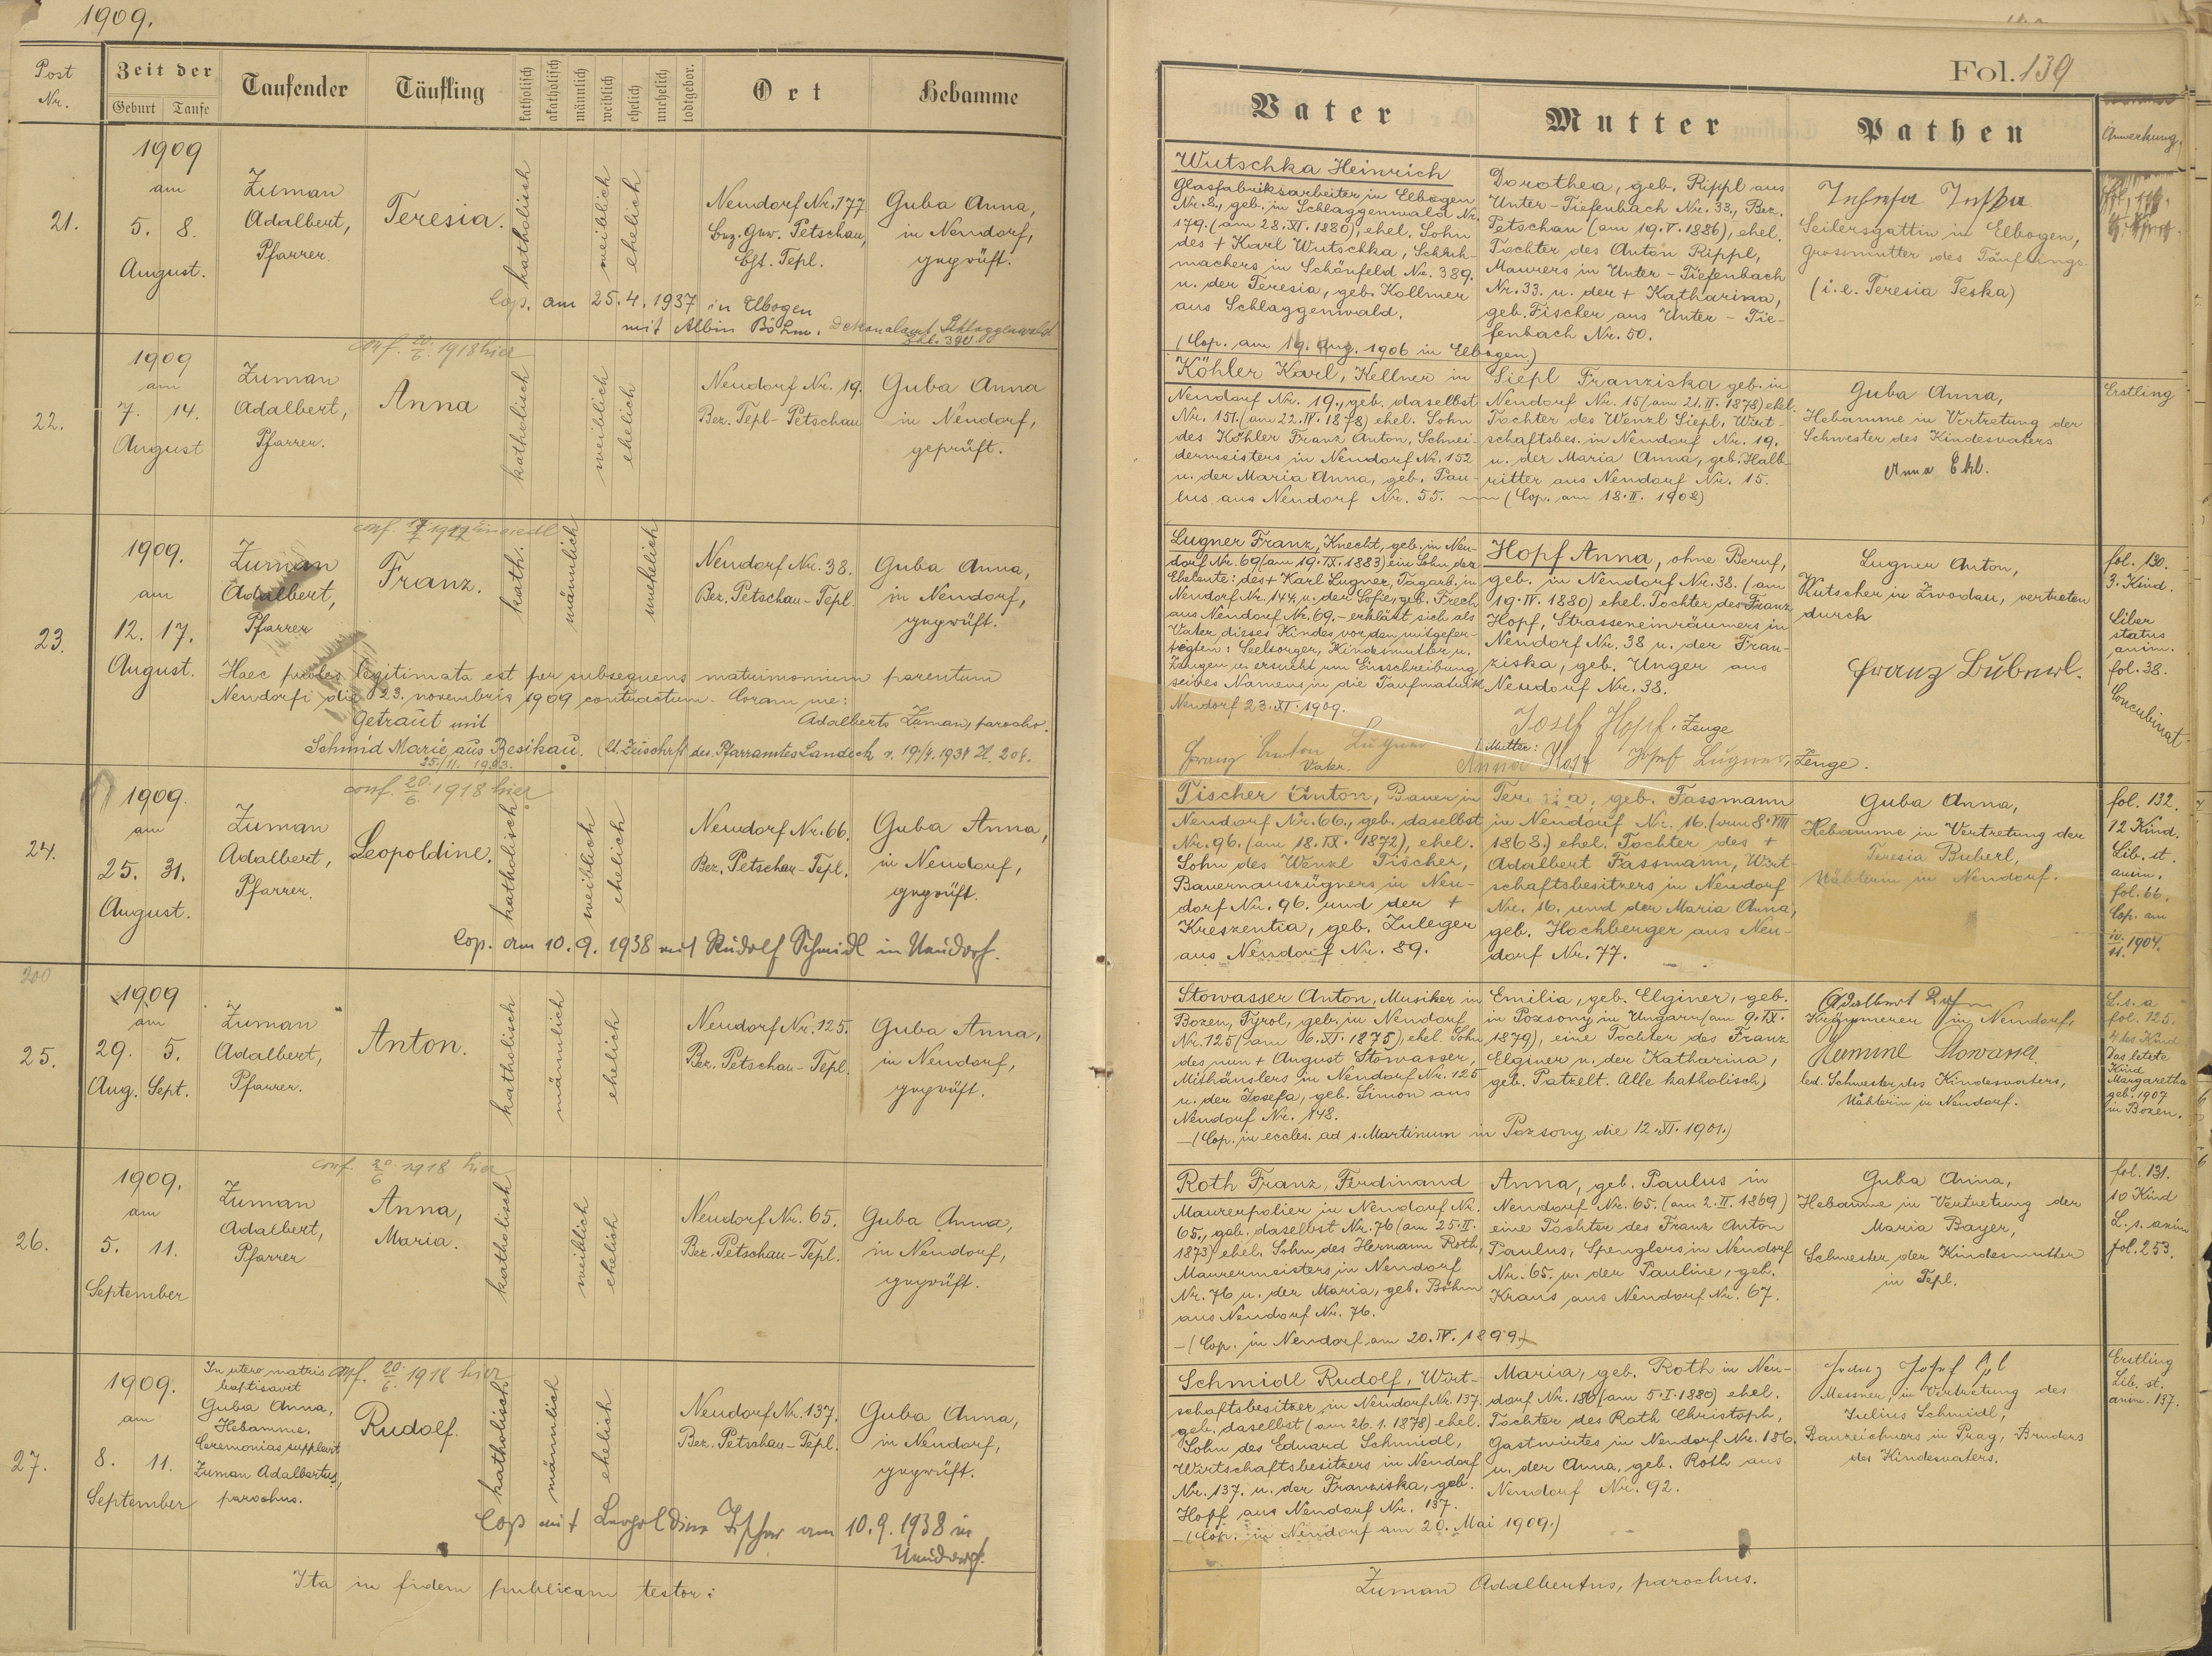 1909.
Post Nr.
Zeit der
Geburt
Taufe
Taufender
Täufling
katholisch
akatholisch
männlich
weiblich
ehelich
unehelich
todtgebor.
Ort
Hebamme
21.
1909
am
5. 8.
August.
Zuman
Adalbert,
Pfarrer.
Teresia.
katholisch
weiblich
ehelich
Neudorf Nr. 177
Petschau,
Tepl.
Guba Anna,
in Neudorf,
geprüft.
Cop. am 25.4.1937 in Elbogen
mit Albin Böhm. Dekanalamt Schlaggenwald
conf. 20/6. 1918 hier
22.
1909
am
7. 14.
August
Zuman
Adalbert,
Pfarrer.
Anna
katholisch
weiblich
ehelich
Neudorf Nr. 19.
Bez. Tepl-Petschau
Guba Anna
in Neudorf,
geprüft.
conf.
23.
1909.
am
12. 17.
August.
Zuman
Adalbert,
Pfarrer
Franz.
kath.
männlich
unehelich
Neudorf Nr. 38.
Bez. Petschau-Tepl.
Guba Anna,
in Neudorf,
geprüft.
Haec proles legitimata est per subsequens matrimonium parentum
Neudorfi die 23. novembris 1909 contractum. Coram me:
Adalberto Zuman, parocho.
Getraut mit
Schmid Marie aus Resikau. des Pfarramtes Landeck v. 19/4. 1934 Z. 204.
25./11. 1933.
conf. 20/6. 1918 hier
24.
1909.
am
25. 31.
August.
Zuman
Adalbert,
Pfarrer.
Leopoldine.
katholisch
weiblich
ehelich
Neudorf Nr. 66.
Bez. Petschau-Tepl.
Guba Anna,
in Neudorf,
geprüft.
Cop. am 10.9.1938 mit Rudolf Schmidl in Neudorf.
200
25.
1909
am
29. 5.
Aug. Sept.
Zuman
Adalbert,
Pfarrer.
Anton.
katholisch
männlich
ehelich
Neudorf Nr. 125.
Bez. Petschau-Tepl.
Guba Anna,
in Neudorf,
geprüft.
conf. 20/6. 1918 hier
26.
1909.
am
5. 11.
September
Zuman
Adalbert,
Pfarrer
Anna,
Maria.
katholisch
weiblich
ehelich
Neudorf Nr. 65.
Bez. Petschau-Tepl.
Guba Anna,
in Neudorf,
geprüft.
conf. 20/6. 1918 hier
27.
1909.
am
8. 11.
September
In utero matris
baptisavit
Guba Anna,
Hebamme.
Ceremonias supplevit
Zuman Adalbertus,
parochus.
Rudolf.
katholisch
männlich
ehelich
Neudorf Nr. 137.
Bez. Petschau-Tepl.
Guba Anna,
in Neudorf,
geprüft.
Cop. mit Leopoldine Fischer am 10.9.1938 in
Neudorf.
Ita in fidem publicam testor:
Fol. 139
Vater
Mutter
Pathen
Anmerkung.
Wutschka Heinrich
Glasfabriksarbeiter in Elbogen
Nr. 2., geb. in Schlaggenwald Nr.
179. (am 28.XI.1880), ehel. Sohn
des + Karl Wutschka, Schuh-
machers in Schönfeld Nr. 389.
u. der Teresia, geb. Kollmer
aus Schlaggenwald.
(Cop. am 19. Aug. 1906 in Elbogen.)
Dorothea, geb. Rippl aus
Unter-Tiefenbach Nr. 33., Bez.
Petschau (am 19.V.1886), ehel.
Tochter des Anton Rippl,
Maurers in Unter-Tiefenbach
Nr. 33. u. der + Katharina,
geb. Fischer aus Unter-Tie-
fenbach Nr. 50.
Seilersgattin in Elbogen,
Grossmutter des Täuflings.
(i.e. Teresia Teska)
Köhler Karl, Kellner in
Neudorf Nr. 19., geb. daselbst
Nr. 151. (am 22.IV.1878) ehel. Sohn
des Köhler Franz Anton, Schnei-
dermeisters in Neudorf Nr. 152
u. der Maria Anna, geb. Pau-
lus aus Neudorf Nr. 55.
Siepl Franziska geb. in
Neudorf Nr. 15 (am 21.II.1878) ehel.
Tochter des Wenzl Siepl, Wirt-
schaftsbes. in Neudorf Nr. 19.
u. der Maria Anna, geb. Halb-
ritter aus Neudorf Nr. 15.
(Cop. am 18.II.1902)
Guba Anna,
Hebamme in Vertretung der
Schwester des Kindesvaters
Anna
Erstling
Lugner Franz, Knecht, geb. in Neu-
dorf Nr. 69 (am 19.IX.1883) ein Sohn der
Eheleute: des + Karl Lugner, Tagarb. in
Neudorf Nr. 144. u. der Sofie, geb. Frech
aus Neudorf Nr. 69. – erklärt sich als
Vater dieses Kindes vor den mitgefer-
tigten: Seelsorger, Kindesmutter u.
Zeugen u. ersucht um Einschreibung
seines Namens in die Taufmatrik.
Neudorf 23.XI.1909.
Franz Anton Lugner
Vater.
Hopf Anna, ohne Beruf,
geb. in Neudorf Nr. 38. (am
19.IV.1880) ehel. Tochter des Franz
Hopf, Strasseneinräumers in
Neudorf Nr. 38 u. der Fran-
ziska, geb. Unger aus
Neudorf Nr. 38.
Josef Hopf, Zeuge
Mutter:
Anna Hopf Josef Lugner, Zeuge.
Lugner Anton,
Kutscher in Zwodau, vertreten
durch
Franz Buberl.
fol. 130.
3. Kind.
Liber
status
anim.
fol. 38.
Concubinat.
Fischer Anton, Bauer in
Neudorf Nr. 66., geb. daselbst
Nr. 96. (am 18.IX.1872), ehel.
Sohn des Wenzl Fischer,
Bauernauszügners in Neu-
dorf Nr. 96. und der +
Kreszentia, geb. Zuleger
aus Neudorf Nr. 89.
Teresia, geb. Fassmann
in Neudorf Nr. 16. (am 8.VIII
1868.) ehel. Tochter des +
Adalbert Fassmann, Wirt-
schaftsbesitzers in Neudorf
Nr. 16. und der Maria Anna,
geb. Hochberger aus Neu-
dorf Nr. 77.
Guba Anna,
Hebamme in Vertretung der
Teresia Buberl,
Nähterin in Neudorf.
fol. 132.
12 Kind.
Lib. st.
anim.
fol. 66.
Cop. am
10/11. 1904.
Stowasser Anton, Musiker in
Bozen, Tyrol, geb. in Neudorf
Nr. 125 (am 6.XI.1875), ehel. Sohn
des nun + August Stowasser,
Mithäuslers in Neudorf Nr. 125
u. der Josefa, geb. Simon aus
Neudorf Nr. 148.
– (Cop. in eccles. ad s. Martinum in Pozsony die 12.XI.1901.)
Emilia, geb. Elginer, geb.
in Pozsony in Ungarn (am 9.IX.
1879), eine Tochter des Franz
Elginer u. der Katharina,
geb. Patzelt. Alle katholisch)
Adalbert
Krämmerer in Neudorf,
Stowasser
led. Schwester des Kindesvaters,
Nähterin in Neudorf.
L. s. a
fol. 125.
4 tes Kind
Das letzte
Kind
Margaretha
geb. 1907
in Bozen.
Roth Franz, Ferdinand
Maurerpolier in Neudorf Nr.
65., geb. daselbst Nr. 76 (am 25.II.
1873) ehel. Sohn des Hermann Roth,
Maurermeisters in Neudorf
Nr. 76 u. der Maria, geb. Böhm
aus Neudorf Nr. 76.
– (Cop. in Neudorf am 20.IV.1899.)
Anna, geb. Paulus in
Neudorf Nr. 65. (am 2.II.1869)
eine Tochter des Franz Anton
Paulus, Spenglers in Neudorf
Nr. 65. u. der Pauline, geb.
Kraus aus Neudorf Nr. 67.
Guba Anna,
Hebamme in Vertretung der
Maria Bayer,
Schwester der Kindesmutter
in Tepl.
fol. 131.
10 Kind
L. s. anim
fol. 253.
Schmidl Rudolf, Wirt-
schaftsbesitzer in Neudorf Nr. 137.
geb. daselbst (am 26.1.1878) ehel.
Sohn des Eduard Schmidl,
Wirtschaftsbesitzers in Neudorf
Nr. 137. u. der Franziska, geb.
Hopf aus Neudorf Nr. 137.
– (Cop. in Neudorf am 20. Mai 1909.)
Maria, geb. Roth in Neu-
dorf Nr. 180 (am 5.I.1880) ehel.
Tochter des Roth Christoph,
Gastwirtes in Neudorf Nr. 186.
u. der Anna, geb. Roth aus
Neudorf Nr. 92.
Franz Josef
Messner, in Vertretung des
Julius Schmidl,
Bauzeichners in Prag, Bruders
des Kindesvaters.
Erstling
Lib. st.
anim. 137.
Zuman Adalbertus, parochus.